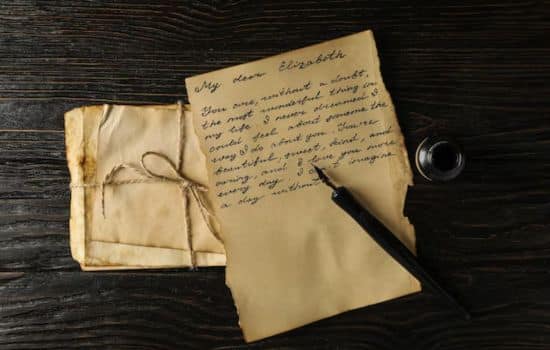 My dear Elizabeth
You are, without a doubt,
the most wonderful thing in
my life. I never dreamed I
could feel about someone the
way I do about you. You're
beautiful, sweet, kind, and
caring, and I love you more
every day. I imagine
a day without